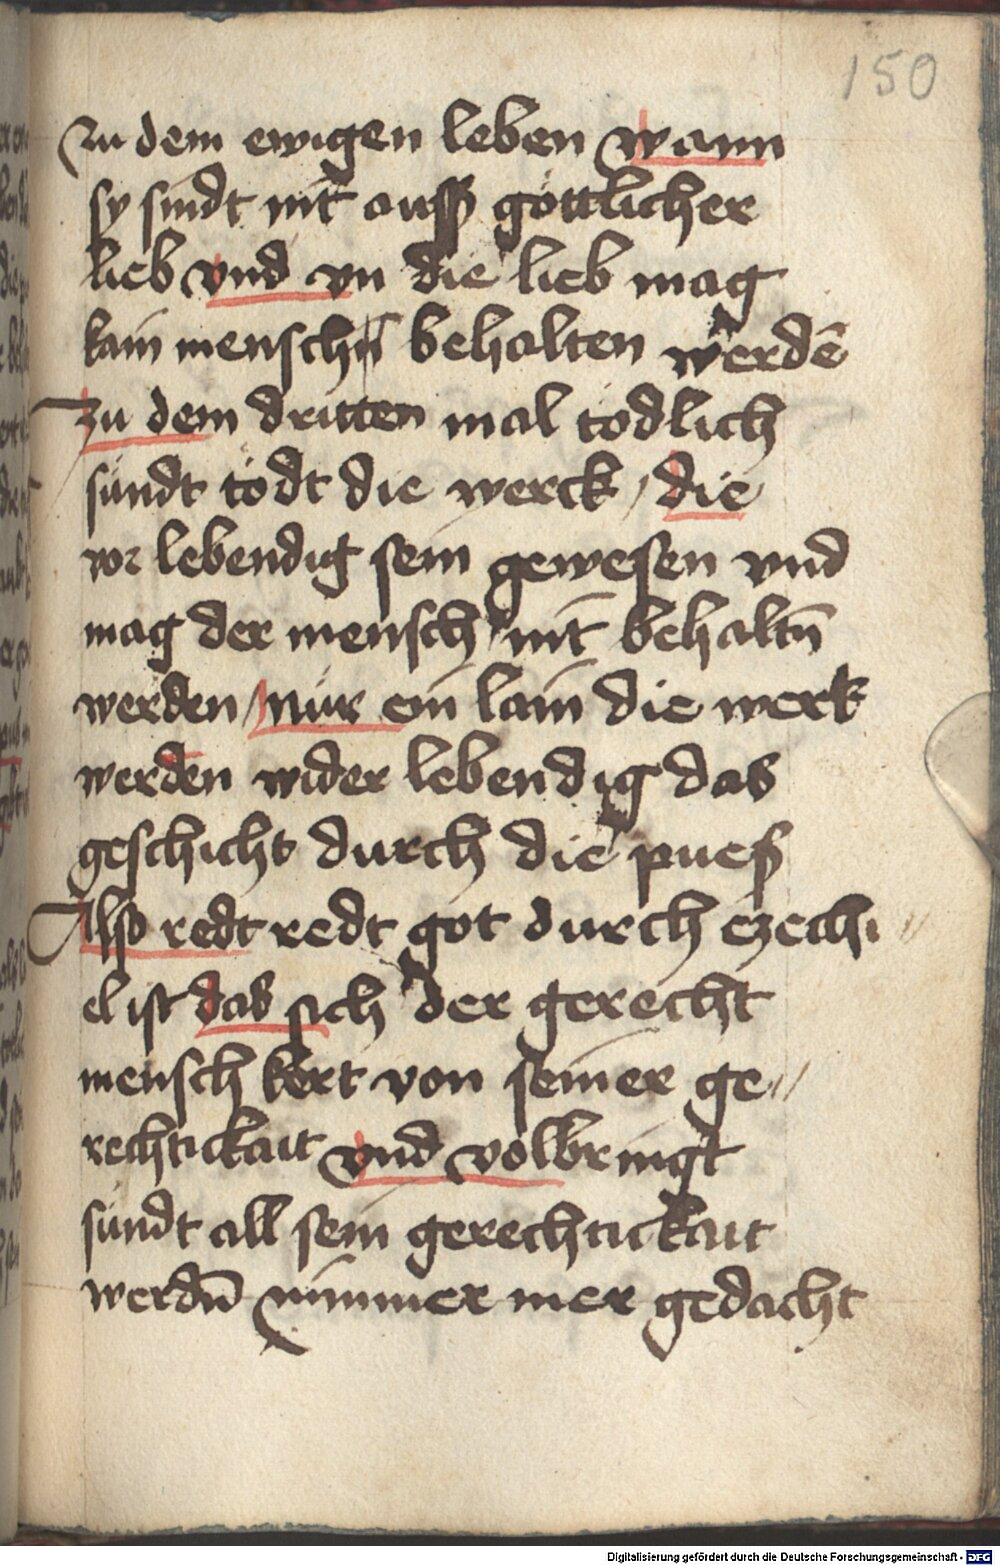 150
zu dem ewigen leben wann
sy sindt nit auss göttlicher
lieb vnd vn die lieb mag
kain mensch behalten werdē
zu dem dritten mal todlich
sündt tödt die werck / die
vor lebendig sein gewesen vnd
mag der mensch nit behaltn̄
werden / nur ein lain die werk
werden wider lebendig das
geschicht durch die pueß
Also redt redt got durch ezechi //
el ist das sich der gerecht
mensch kert von seiner ge //
rechtickait vnd volbringt
sündt all sein gerechtickait
werdn̄ nimmer mer gedacht
Digitalisierung gefördert durch die Deutsche Forschungsgemeinschaft - DFG